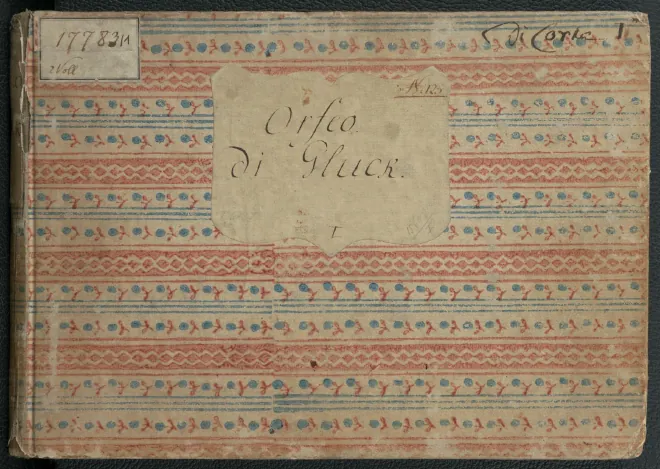 17783/1
2 Voll
Di Corte 1
N: 125
Orfeo
Di Gluck.
I